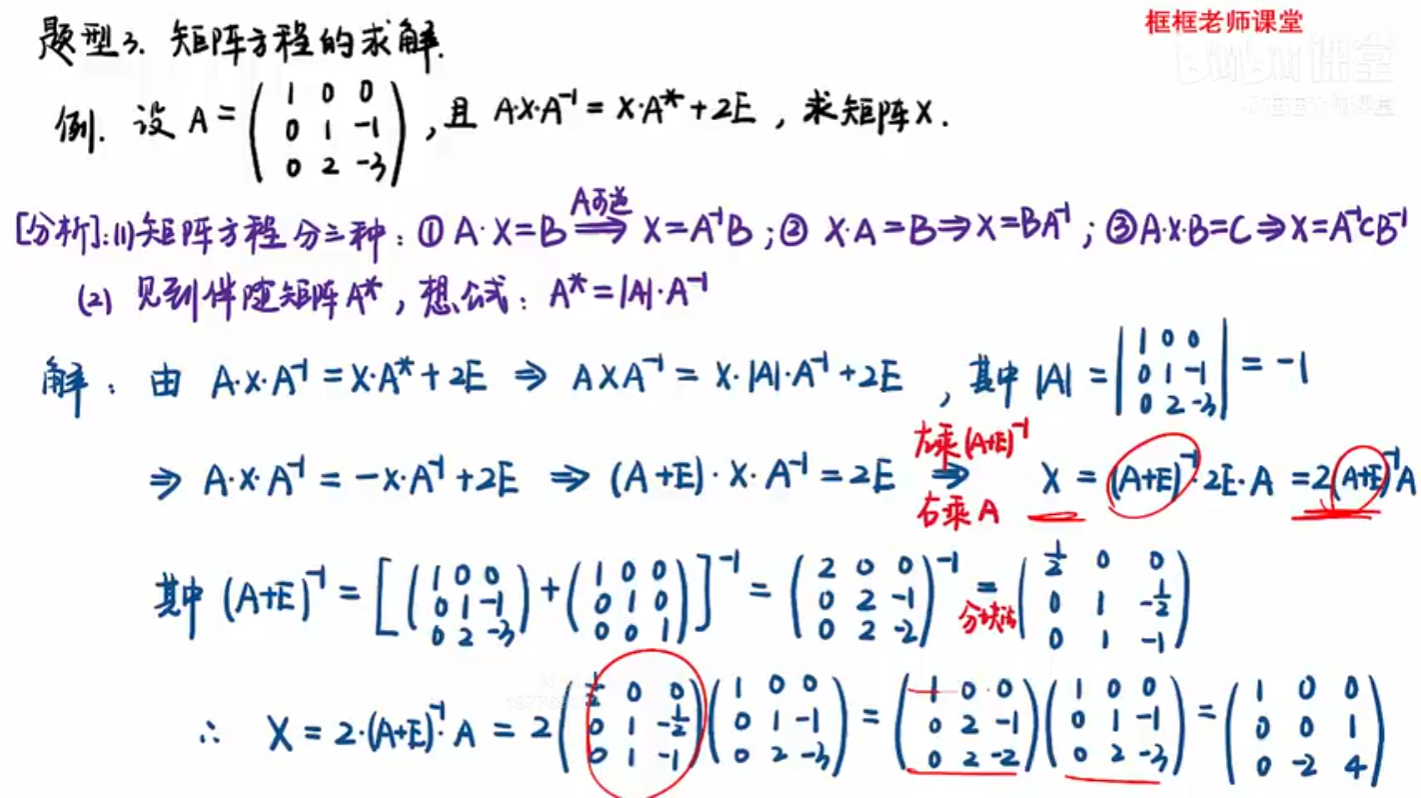 框框老师课堂
BiliBili 课堂
题型3. 矩阵方程的求解.
例. 设 A = ( 1 0 0 ; 0 1 -1 ; 0 2 -3 ) , 且 A·X·A⁻¹ = X·A* + 2E , 求矩阵X.
[分析]: (1) 矩阵方程分三种: ① A·X=B ⇒(A可逆) X=A⁻¹B ; ② X·A=B ⇒ X=BA⁻¹ ; ③ A·X·B=C ⇒ X=A⁻¹CB⁻¹
(2) 见到伴随矩阵A* , 想公式: A* = |A|·A⁻¹
解: 由 A·X·A⁻¹ = X·A* + 2E ⇒ AXA⁻¹ = X·|A|·A⁻¹ + 2E , 其中 |A| = | 1 0 0 ; 0 1 -1 ; 0 2 -3 | = -1
⇒ A·X·A⁻¹ = -X·A⁻¹ + 2E ⇒ (A+E)·X·A⁻¹ = 2E ⇒(左乘(A+E)⁻¹ 右乘A) X = (A+E)⁻¹·2E·A = 2(A+E)⁻¹A
其中 (A+E)⁻¹ = [ ( 1 0 0 ; 0 1 -1 ; 0 2 -3 ) + ( 1 0 0 ; 0 1 0 ; 0 0 1 ) ]⁻¹ = ( 2 0 0 ; 0 2 -1 ; 0 2 -2 )⁻¹ =(分块法) ( 1/2 0 0 ; 0 1 -1/2 ; 0 1 -1 )
∴ X = 2·(A+E)⁻¹·A = 2 ( 1/2 0 0 ; 0 1 -1/2 ; 0 1 -1 ) ( 1 0 0 ; 0 1 -1 ; 0 2 -3 ) = ( 1 0 0 ; 0 2 -1 ; 0 2 -2 ) ( 1 0 0 ; 0 1 -1 ; 0 2 -3 ) = ( 1 0 0 ; 0 0 1 ; 0 -2 4 )